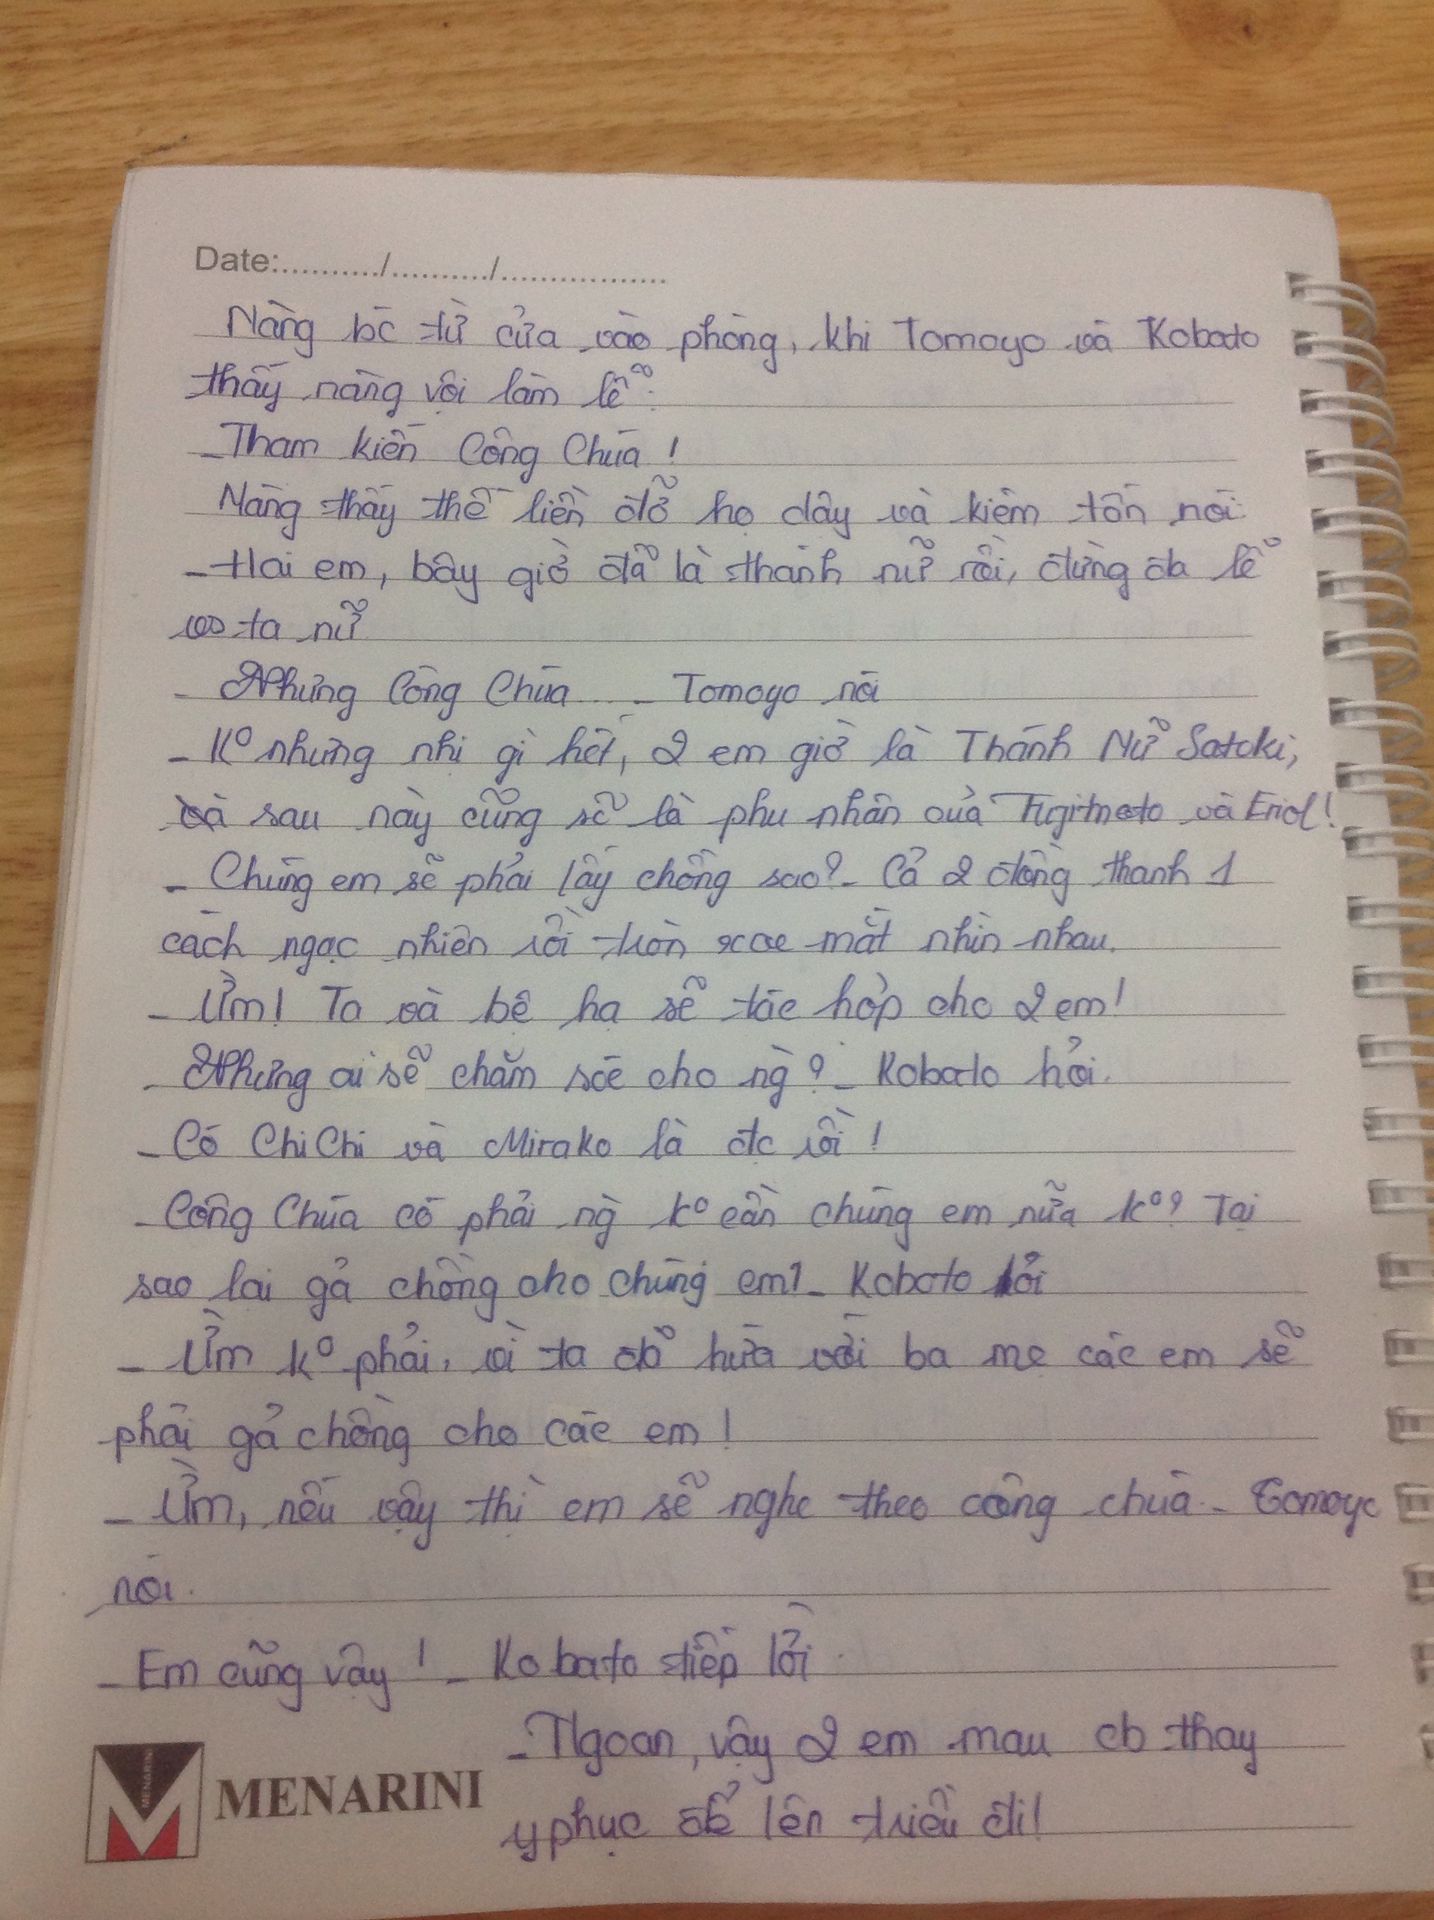 Date:........../........../.................
Nàng bc từ cửa vào phòng, khi Tomoyo và Kobato
thấy nàng vội làm lễ:
- Tham kiến Công Chúa!
Nàng thấy thế liền đỡ họ dậy và kiêm tốn nói:
- Hai em, bây giờ đã là thánh nữ rồi, đừng đa lễ
vs ta nữ
- Nhưng Công Chúa... - Tomoyo nói
- Kº nhưng nhị gì hết, 2 em giờ là Thánh Nữ Satoki,
và sau này cũng sẽ là phu nhân của và Eriol!
- Chúng em sẽ phải lấy chồng sao? - Cả 2 đồng thanh 1
cách ngạc nhiên rồi tròn xoe mắt nhìn nhau.
- Ừm! Ta và bệ hạ sẽ tác hợp cho 2 em!
- Nhưng ai sẽ chăm sóc cho ng`? - Kobato hỏi.
- Có ChiChi và Mirako là đc rồi!
- Công Chúa có phải ng` kº cần chúng em nữa kº? Tại
sao lại gả chồng cho chúng em? - Kobato hỏi
- Ừm kº phải, vì ta đã hứa với ba mẹ các em sẽ
phải gả chồng cho các em!
- Ừm, nếu vậy thì em sẽ nghe theo công chúa. - Tomoyo
nói.
- Em cũng vậy! - Kobato tiếp lời.
- Ngoan, vậy 2 em mau cb thay
y phục để lên triều đi!
MENARINI
MENARINI